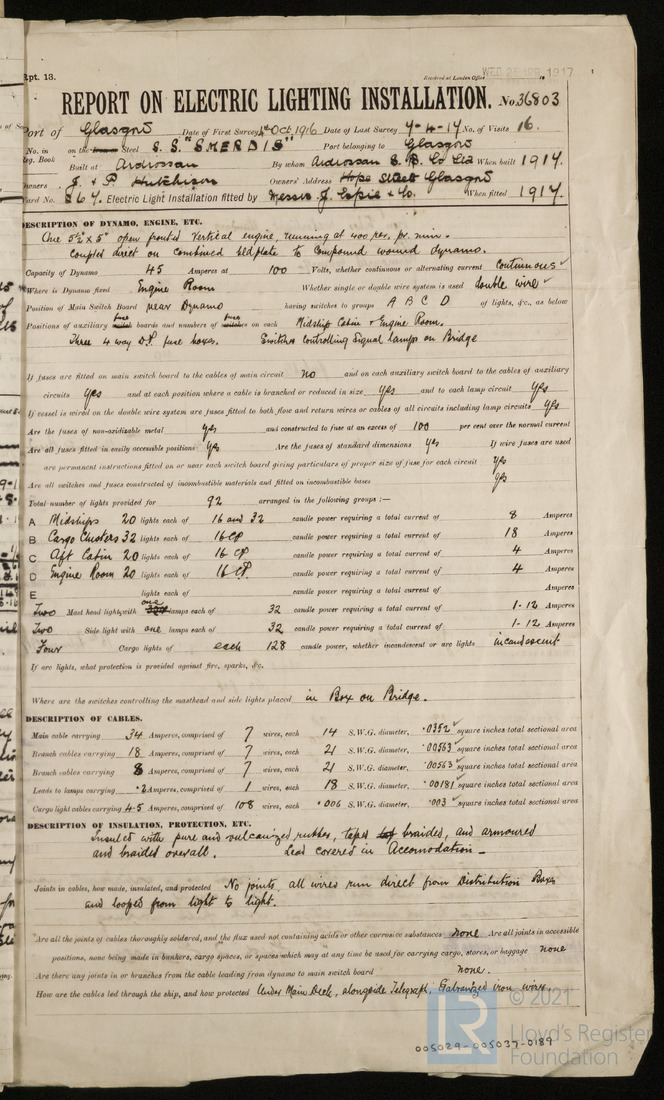 Rpt. 13.
Received at London Office WED. 25 APR. 1917
REPORT ON ELECTRIC LIGHTING INSTALLATION. No. 36803
Port of Glasgow Date of First Survey 4th Oct. 1916 Date of Last Survey 7-4-17 No. of Visits 16.
No. in Reg. Book on the Iron Steel S.S. "SMERDIS" Port belonging to Glasgow
Built at Ardrossan By whom Ardrossan S. B. Co Ltd When built 1917.
Owners J. & P. Hutchison Owners' Address Hope Street Glasgow
Card No. 267. Electric Light Installation fitted by Messrs J. Espie & Co. When fitted 1917.
DESCRIPTION OF DYNAMO, ENGINE, ETC.
One 5½" x 5" open fronted Vertical engine, running at 400 rev. pr. min.
Coupled direct on combined bedplate to Compound wound dynamo.
Capacity of Dynamo 45 Amperes at 100 Volts, whether continuous or alternating current Continuous
Where is Dynamo fixed Engine Room Whether single or double wire system is used double wire
Position of Main Switch Board near Dynamo having switches to groups A B C D of lights, &c., as below
Positions of auxiliary switch fuse boards and numbers of switches fuses on each Midship Cabin & Engine Room.
Three 4 way D.P. fuse boxes. Switches controlling Signal lamps on Bridge
If fuses are fitted on main switch board to the cables of main circuit no and on each auxiliary switch board to the cables of auxiliary
circuits yes and at each position where a cable is branched or reduced in size yes and to each lamp circuit yes
If vessel is wired on the double wire system are fuses fitted to both flow and return wires or cables of all circuits including lamp circuits yes
Are the fuses of non-oxidizable metal yes and constructed to fuse at an excess of 100 per cent over the normal current
Are all fuses fitted in easily accessible positions yes Are the fuses of standard dimensions yes If wire fuses are used
are permanent instructions fitted on or near each switch board giving particulars of proper size of fuse for each circuit yes
Are all switches and fuses constructed of incombustible materials and fitted on incombustible bases yes
Total number of lights provided for 92 arranged in the following groups :—
A Midships 20 lights each of 16 and 32 candle power requiring a total current of 8 Amperes
B Cargo Clusters 32 lights each of 16 CP candle power requiring a total current of 18 Amperes
C Aft Cabin 20 lights each of 16 CP candle power requiring a total current of 4 Amperes
D Engine Room 20 lights each of 16 CP. candle power requiring a total current of 4 Amperes
E lights each of candle power requiring a total current of Amperes
Two Mast head light with one lamps each of 32 candle power requiring a total current of 1·12 Amperes
Two Side light with one lamps each of 32 candle power requiring a total current of 1·12 Amperes
Four Cargo lights of each 128 candle power, whether incandescent or arc lights incandescent
If arc lights, what protection is provided against fire, sparks, &c.
Where are the switches controlling the masthead and side lights placed in Box on Bridge.
DESCRIPTION OF CABLES.
Main cable carrying 34 Amperes, comprised of 7 wires, each 14 S.W.G. diameter, ·0352 square inches total sectional area
Branch cables carrying 18 Amperes, comprised of 7 wires, each 21 S.W.G. diameter, ·00563 square inches total sectional area
Branch cables carrying 8 Amperes, comprised of 7 wires, each 21 S.W.G. diameter, ·00563 square inches total sectional area
Leads to lamps carrying ·2 Amperes, comprised of 1 wires, each 18 S.W.G. diameter, ·00181 square inches total sectional area
Cargo light cables carrying 4·5 Amperes, comprised of 108 wires, each ·006 S.W.G. diameter, ·003 square inches total sectional area
DESCRIPTION OF INSULATION, PROTECTION, ETC.
Insulted with pure and vulcanized rubber, taped braided, and armoured
and braided overall. Lead covered in Accomodation -
Joints in cables, how made, insulated, and protected No joints, all wires run direct from Distribution Boxes
and looped from light to light.
Are all the joints of cables thoroughly soldered, and the flux used not containing acids or other corrosive substances none Are all joints in accessible
positions, none being made in bunkers, cargo spaces, or spaces which may at any time be used for carrying cargo, stores, or baggage none
Are there any joints in or branches from the cable leading from dynamo to main switch board none.
How are the cables led through the ship, and how protected Under Main Deck, alongside Telegraph; Galvanized iron wire.
© 2021
LR
Lloyd's Register
Foundation
005029-005037-0189